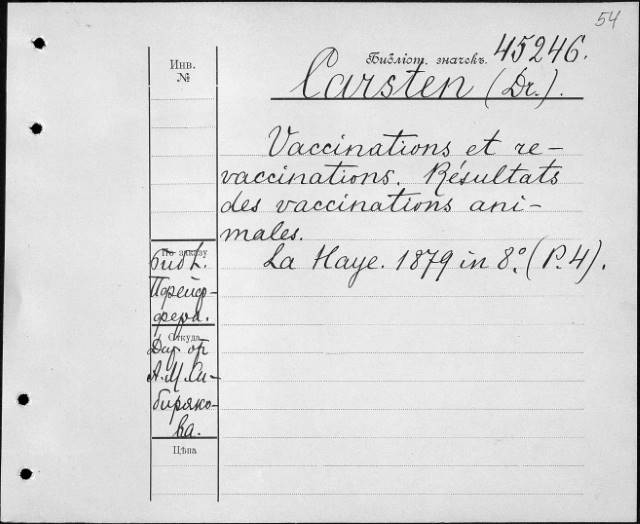 54
Инв.
№
Библіот. значекъ. 45246.
Carsten (Dr.).
Vaccinations et re-
vaccinations. Résultats
des vaccinations ani-
males.
La Haye. 1879 in 8.° (P. 4).
По заказу
Библ.
Пфейф-
фера.
Откуда
Дар от
А. М. Си-
биряко-
ва.
Цѣна